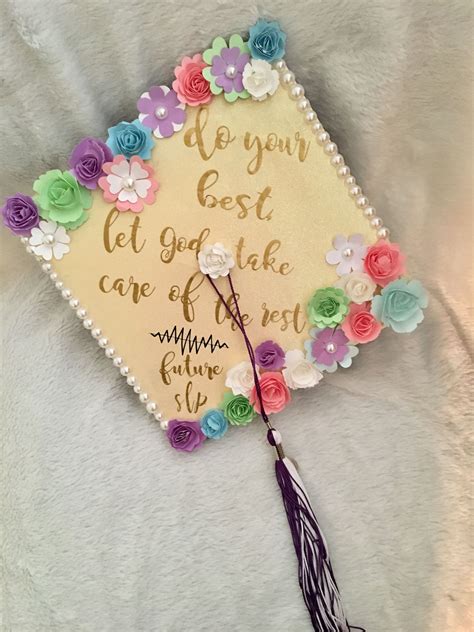 do your
best,
let god take
care of the rest
future
slp